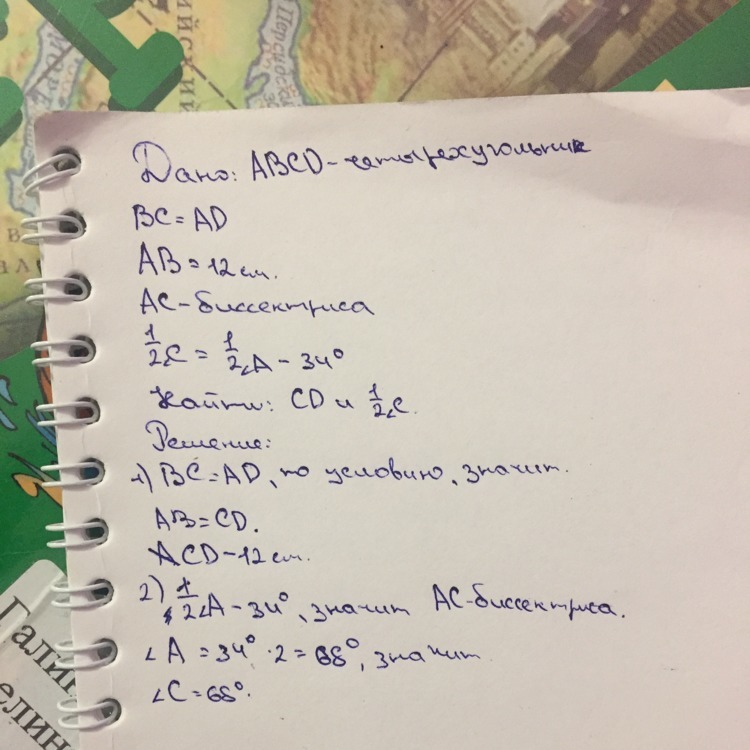 Персид
Дано: ABCD - четырехугольник
BC = AD
AB = 12 см.
AC - биссектриса
1/2∠C = 1/2∠A - 34°
Найти: CD и 1/2∠C.
Решение:
1) BC = AD, по условию, значит.
AB = CD.
ACD - 12 см.
2) 1/2∠A - 34°, значит AC - биссектриса.
∠A = 34° · 2 = 68°, значит
∠C = 68°.
Гали
елин